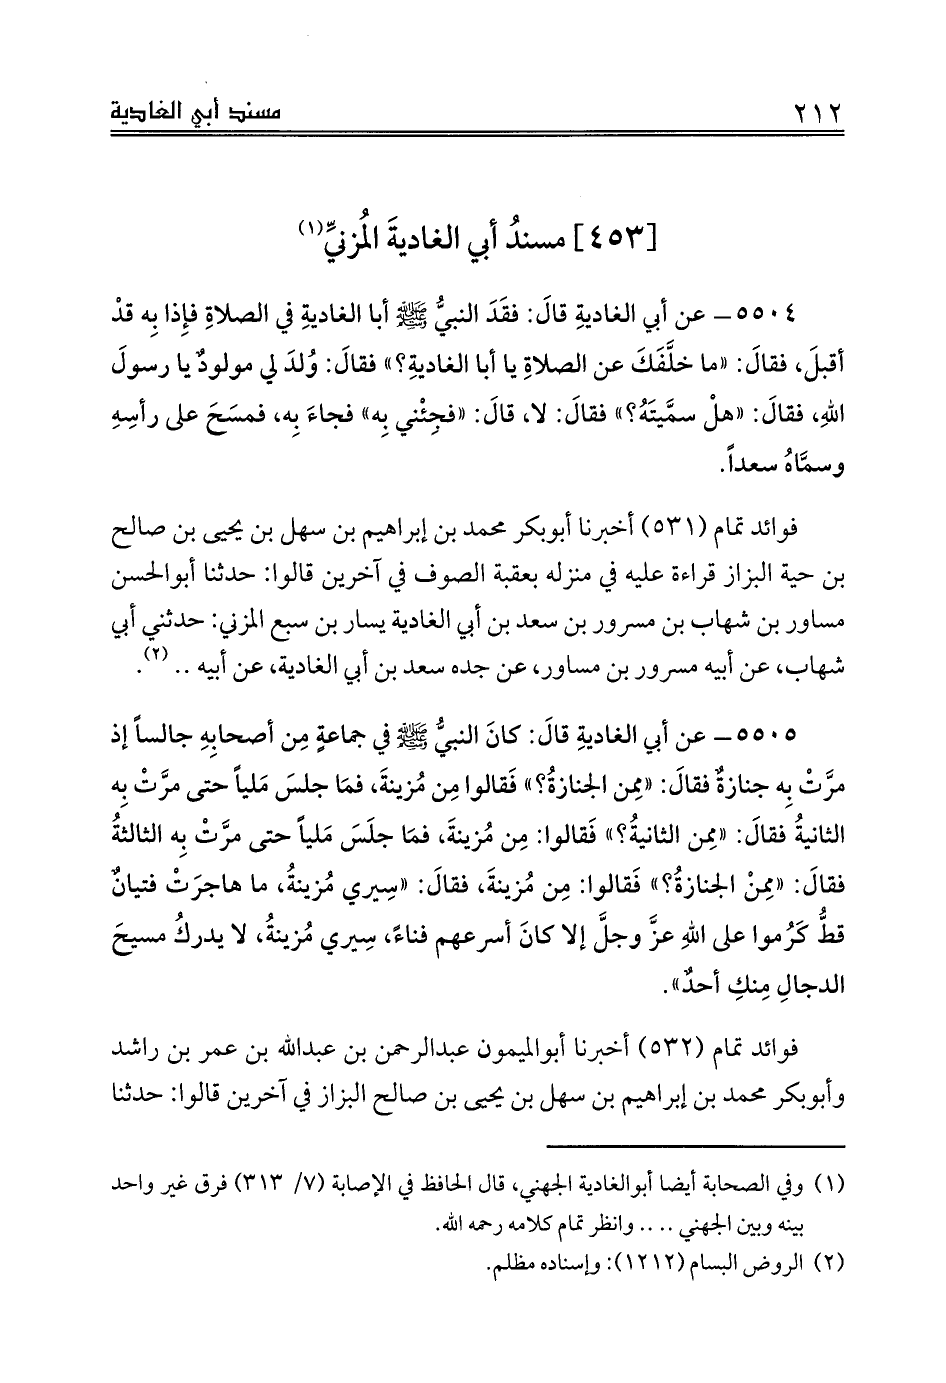 ٢١٢ مسند أبي الغادية
[٤٥٣] مسندُ أبي الغاديةَ المُزنيِّ(١)
٥٥٠٤- عن أبي الغاديةِ قالَ: فقَدَ النبيُّ ﷺ أبا الغاديةِ في الصلاةِ فإِذا بِه قدْ
أقبلَ، فقالَ: «ما خلَّفَكَ عن الصلاةِ يا أبا الغاديةِ؟» فقالَ: وُلدَ لي مولودٌ يا رسولَ
اللهِ، فقالَ: «هلْ سميَّتَهُ؟» فقالَ: لا، قالَ: «فجِئْني بِه» فجاءَ بِه، فمسَحَ على رأسِهِ
وسمَّاهُ سعداً.
فوائد تمام (٥٣١) أخبرنا أبوبكر محمد بن إبراهيم بن سهل بن يحيى بن صالح
بن حية البزاز قراءة عليه في منزله بعقبة الصوف في آخرين قالوا: حدثنا أبوالحسن
مساور بن شهاب بن مسرور بن سعد بن أبي الغادية يسار بن سبع المزني: حدثني أبي
شهاب، عن أبيه مسرور بن مساور، عن جده سعد بن أبي الغادية، عن أبيه .. (٢).
٥٥٠٥- عن أبي الغاديةِ قالَ: كانَ النبيُّ ﷺ في جماعةٍ مِن أصحابِهِ جالساً إذ
مرَّتْ بِه جنازةٌ فقالَ: «مِمن الجنازةُ؟» فَقالوا مِن مُزينةَ، فمَا جلسَ مَلياً حتى مرَّتْ بِه
الثانيةُ فقالَ: «مِمن الثانيةُ؟» فَقالوا: مِن مُزينةَ، فمَا جلَسَ مَلياً حتى مرَّتْ بِه الثالثةُ
فقالَ: «مِمنْ الجنازةُ؟» فَقالوا: مِن مُزينةَ، فقالَ: «سِيري مُزينةُ، ما هاجرَتْ فتيانٌ
قطُّ كَرُموا على اللهِ عزَّ وجلَّ إلا كانَ أسرعهم فناءً، سِيري مُزينةُ، لا يدركُ مسيحَ
الدجالِ مِنكِ أحدٌ».
فوائد تمام (٥٣٢) أخبرنا أبوالميمون عبدالرحمن بن عبدالله بن عمر بن راشد
وأبوبكر محمد بن إبراهيم بن سهل بن يحيى بن صالح البزاز في آخرين قالوا: حدثنا
(١) وفي الصحابة أيضا أبوالغادية الجهني، قال الحافظ في الإصابة (٧/ ٣١٣) فرق غير واحد
بينه وبين الجهني .... وانظر تمام كلامه رحمه الله.
(٢) الروض البسام (١٢١٢): وإسناده مظلم.